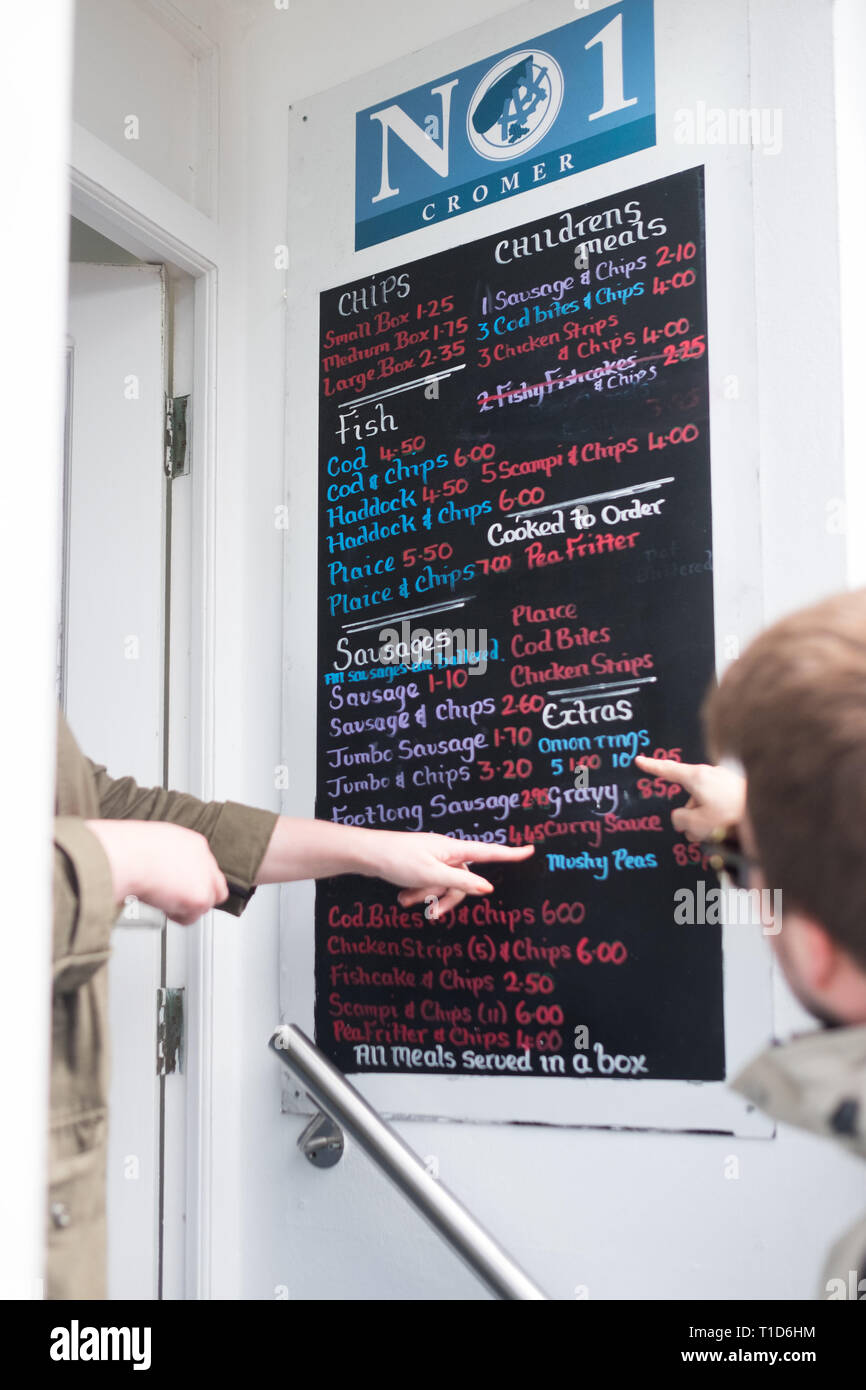 NO1
CROMER
CHIPS
Small Box 1·25
Medium Box 1·75
Large Box 2·35
Fish
Cod 4·50
Cod & Chips 6·00
Haddock 4·50
Haddock & Chips 6·00
Plaice 5·50
Plaice & Chips 7·00
Sausages
All sausages are battered
Sausage 1·10
Sausage & Chips 2·60
Jumbo Sausage 1·70
Jumbo & Chips 3·20
Footlong Sausage 2·95
Chips 4·45
Childrens
Meals
1 Sausage & Chips 2·10
3 Cod bites & Chips 4·00
3 Chicken Strips
& Chips 4·00
2 Fishy Fishcakes 2·25
& Chips
5 Scampi & Chips 4·00
Cooked to Order
Pea Fritter
Plaice
Cod Bites
Chicken Strips
Extras
Onion rings
5 1·00 10
Gravy 85p
Curry Sauce
Mushy Peas 85p
Cod Bites & Chips 6·00
Chicken Strips (5) & Chips 6·00
Fishcake & Chips 2·50
Scampi & Chips (11) 6·00
Pea Fritter & Chips 4·00
All Meals Served in a box
alamy
alamy
Image ID: T1D6HM
www.alamy.com